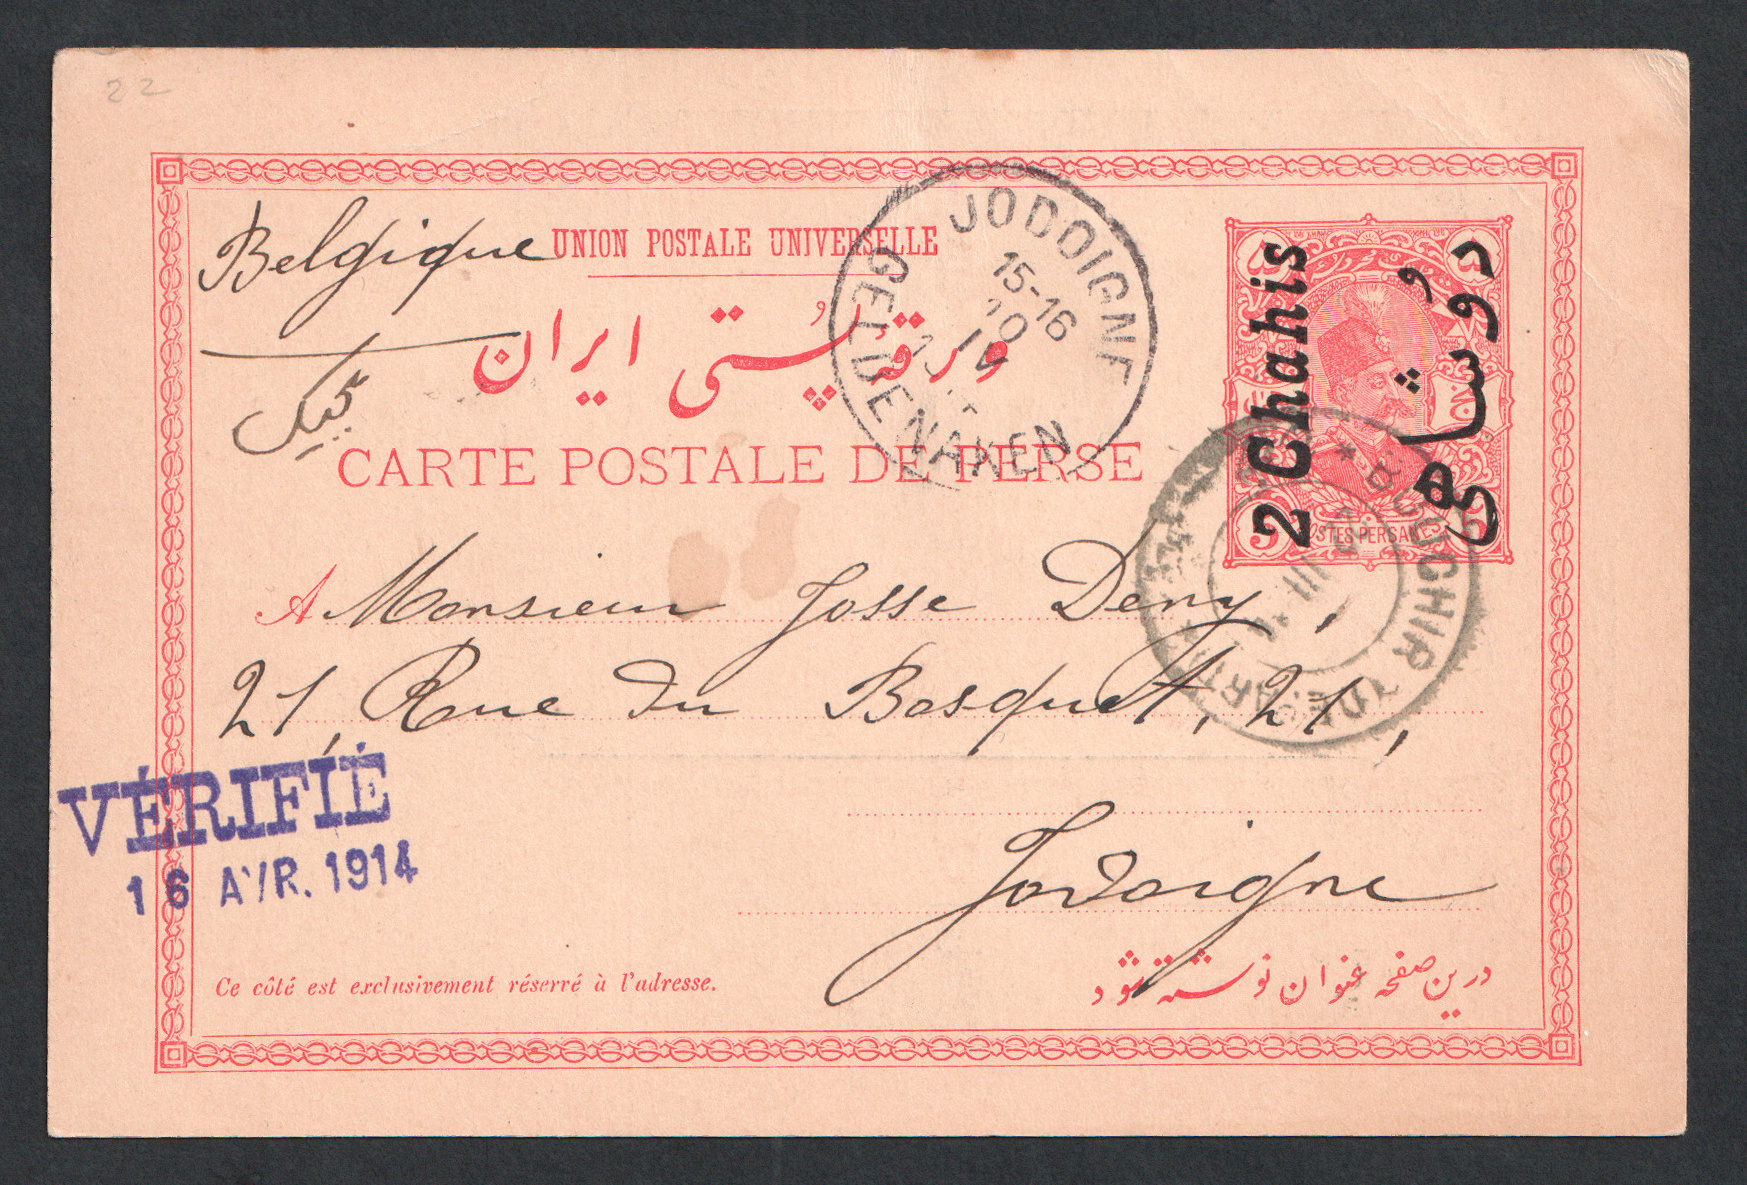 22
Belgique
UNION POSTALE UNIVERSELLE
ورقه پُستی ایران
بلجیک
CARTE POSTALE DE PERSE
JODOIGNE
15-16
10
IV
GELDENAKEN
2 Chahis
دوشاهی
POSTES PERSANES
BOUCHIR (DÉPART)
III
A Monsieur Josse Deny,
21, Rue du Bosquet, 21,
Jodoigne
VÉRIFIÉ
16 AVR. 1914
Ce côté est exclusivement réservé à l'adresse.
درین صفحه عنوان نوشته شود